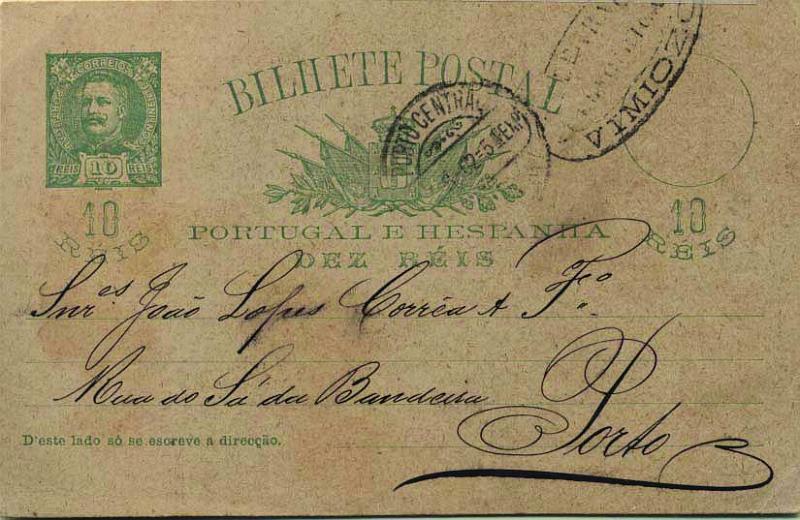 CORREIOS
10
REIS REIS
BILHETE POSTAL
PORTO CENTRAL
VIMIOZO
10
RÉIS
10
RÉIS
PORTUGAL E HESPANHA
DEZ RÉIS
Snr.es João Lopes Corrêa & F.º
Rua do Sá da Bandeira
Porto
D'este lado só se escreve a direcção.